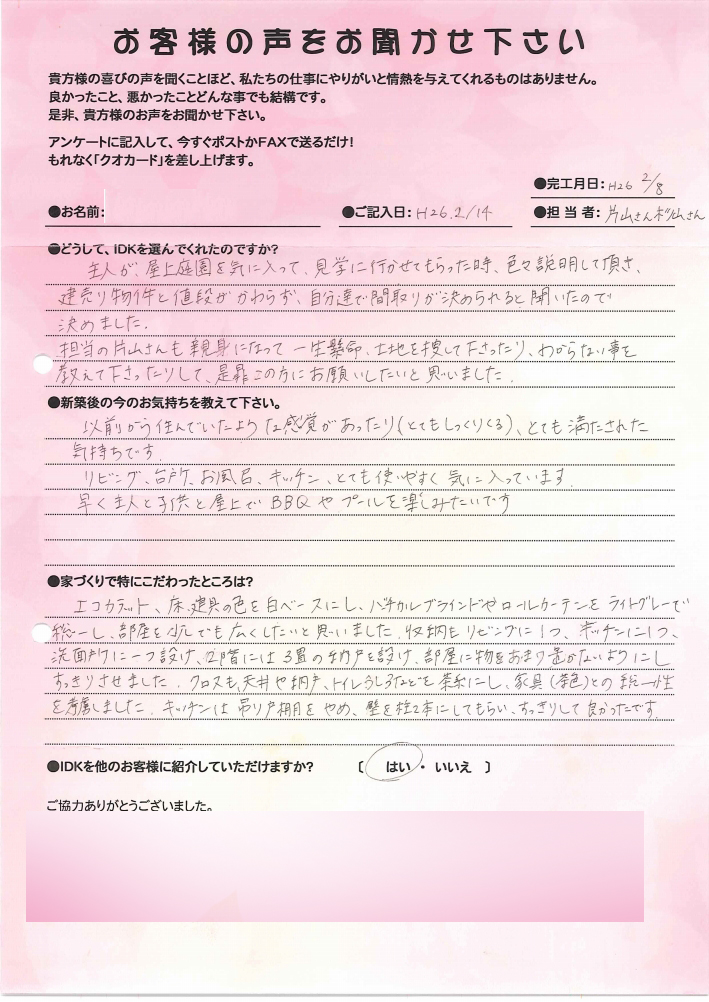 お客様の声をお聞かせ下さい
貴方様の喜びの声を聞くことほど、私たちの仕事にやりがいと情熱を与えてくれるものはありません。
良かったこと、悪かったことどんな事でも結構です。
是非、貴方様のお声をお聞かせ下さい。
アンケートに記入して、今すぐポストかFAXで送るだけ!
もれなく「クオカード」を差し上げます。
●完工月日: H26 2/8
●お名前: ●ご記入日: H26.2/14 ●担当者: 片山さん杉山さん
●どうして、IDKを選んでくれたのですか?
主人が、屋上庭園を気に入って、見学に行かせてもらった時、色々説明して頂き、
建売り物件と値段がかわらず、自分達で間取りが決められると聞いたので
決めました.
担当の片山さんも親身になって一生懸命、土地を捜して下さったり、わからない事を
教えて下さったりして、是非この方にお願いしたいと思いました.
●新築後の今のお気持ちを教えて下さい。
以前から住んでいたような感覚があったり(とてもしっくりくる)、とても満たされた
気持ちです.
リビング、台所、お風呂、キッチン、とても使いやすく気に入っています.
早く主人と子供と屋上でBBQやプールを楽しみたいです
●家づくりで特にこだわったところは?
エコカラット、床、建具の色を白ベースにし、バーチカルブラインドやロールカーテンをライトグレーで
統一し、部屋を少しでも広くしたいと思いました.収納もリビングに1つ、キッチンに1つ、
洗面所に一つ設け、2階には3畳の納戸を設け、部屋に物をあまり置かないようにし
すっきりさせました.クロスも天井や納戸、トイレうしろなどを茶系にし、家具(茶色)との統一性
を考慮しました.キッチンは吊り戸棚をやめ、壁を柱2本にしてもらい、すっきりして良かったです.
●IDKを他のお客様に紹介していただけますか? 〔 はい ・ いいえ 〕
ご協力ありがとうございました。